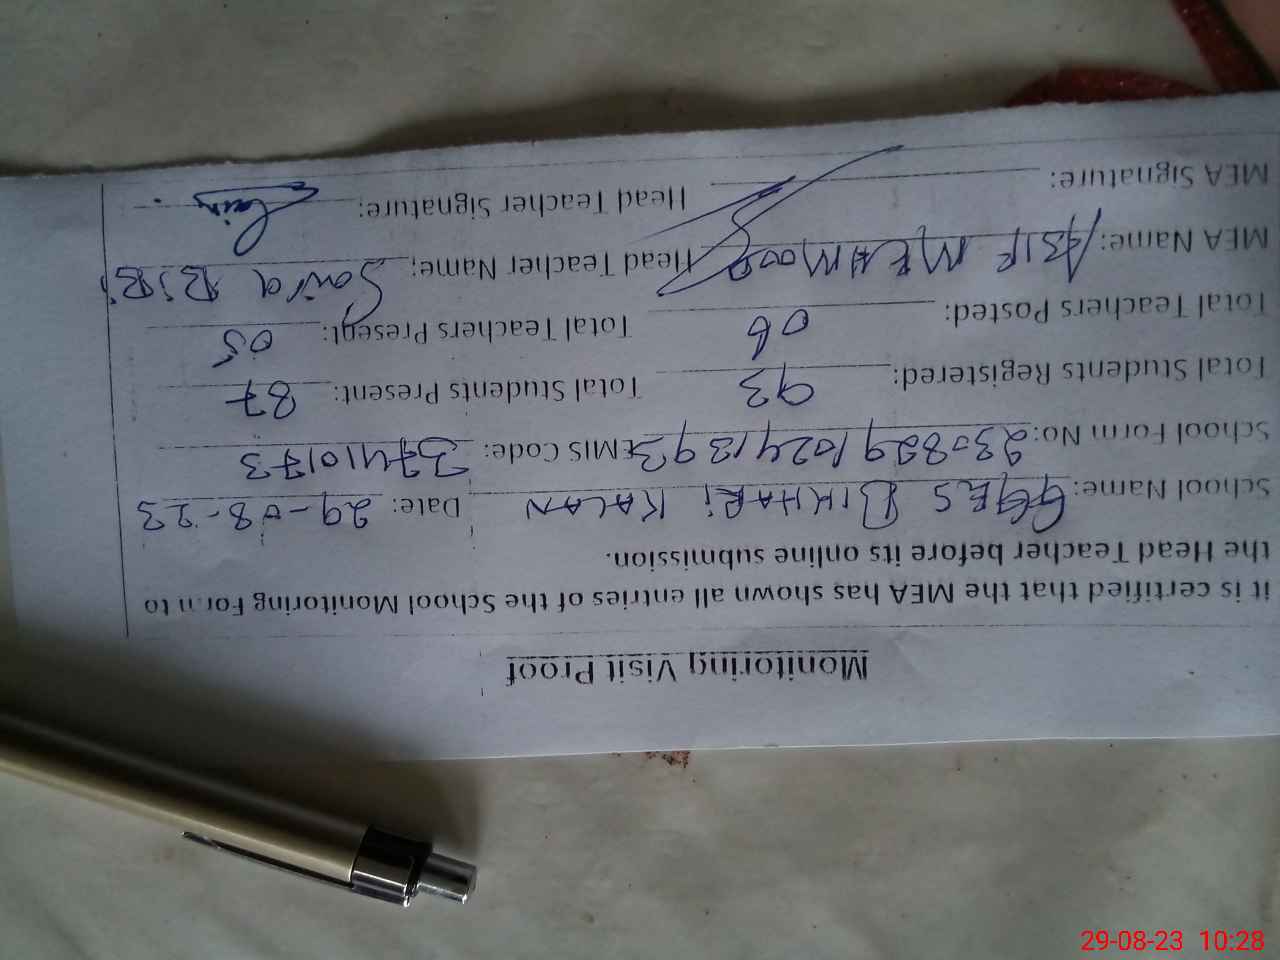 Monitoring Visit Proof
it is certified that the MEA has shown all entries of the School Monitoring Form to
the Head Teacher before its online submission.
School Name: GGES BIKHARI KALAN Date: 29-08-23
School Form No: 2308291024139 EMIS Code: 37410173
Total Students Registered: 93 Total Students Present: 87
Total Teachers Posted: 06 Total Teachers Present: 05
MEA Name: ASIF MEHMOOD Head Teacher Name: Saira BiBi
MEA Signature: Head Teacher Signature:
29-08-23 10:28